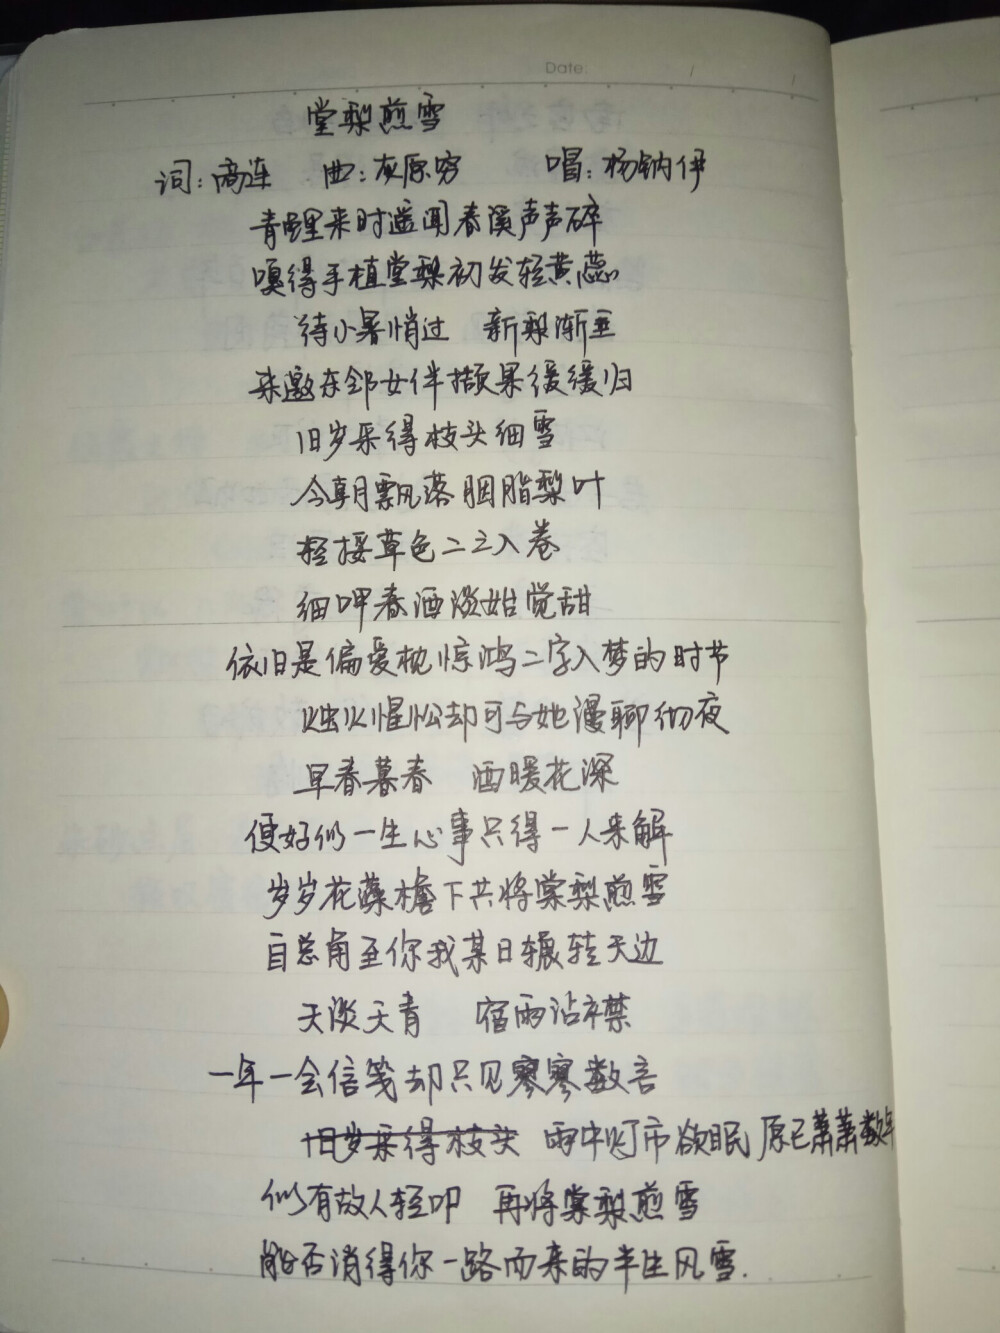 Date:
堂梨煎雪
词：商连 曲：灰原穷 唱：杨钠伊
青睡来时遥闻春溪声声碎
嗅得手植堂梨初发轻黄蕊
待小暑悄过 新梨渐垂
来邀东邻女伴撷果缓缓归
旧岁采得枝头细雪
今朝飘落胭脂梨叶
轻挼草色二三入卷
细呷春酒淡始觉甜
依旧是偏爱枕惊鸿二字入梦的时节
烛火惺忪却可与她漫聊彻夜
早春暮春 酒暖花深
便好似一生心事只得一人来解
岁岁花藻檐下共将棠梨煎雪
自总角至你我某日辗转天边
天淡天青 宿雨沾襟
一年一会信笺却只见寥寥数言
旧岁采得枝头 雨中灯市欲眠 原已萧萧数年
似有故人轻叩 再将棠梨煎雪
能否消得你一路而来的半生风雪.